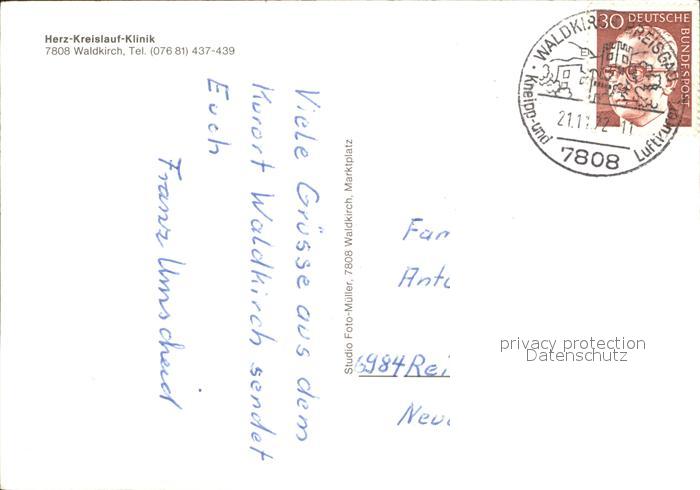 Herz-Kreislauf-Klinik
7808 Waldkirch, Tel. (0 76 81) 437-439
Viele Grüsse aus dem
Kurort Waldkirch sendet
Euch
Franz Umscheid
Studio Foto-Müller, 7808 Waldkirch, Marktplatz
30 DEUTSCHE
BUNDESPOST
WALDKIRCH BREISGAU
Kneipp- und Luftkurort
21.11.72-11
7808
Fam
Anto
6984 Rei
Neu
privacy protection
Datenschutz